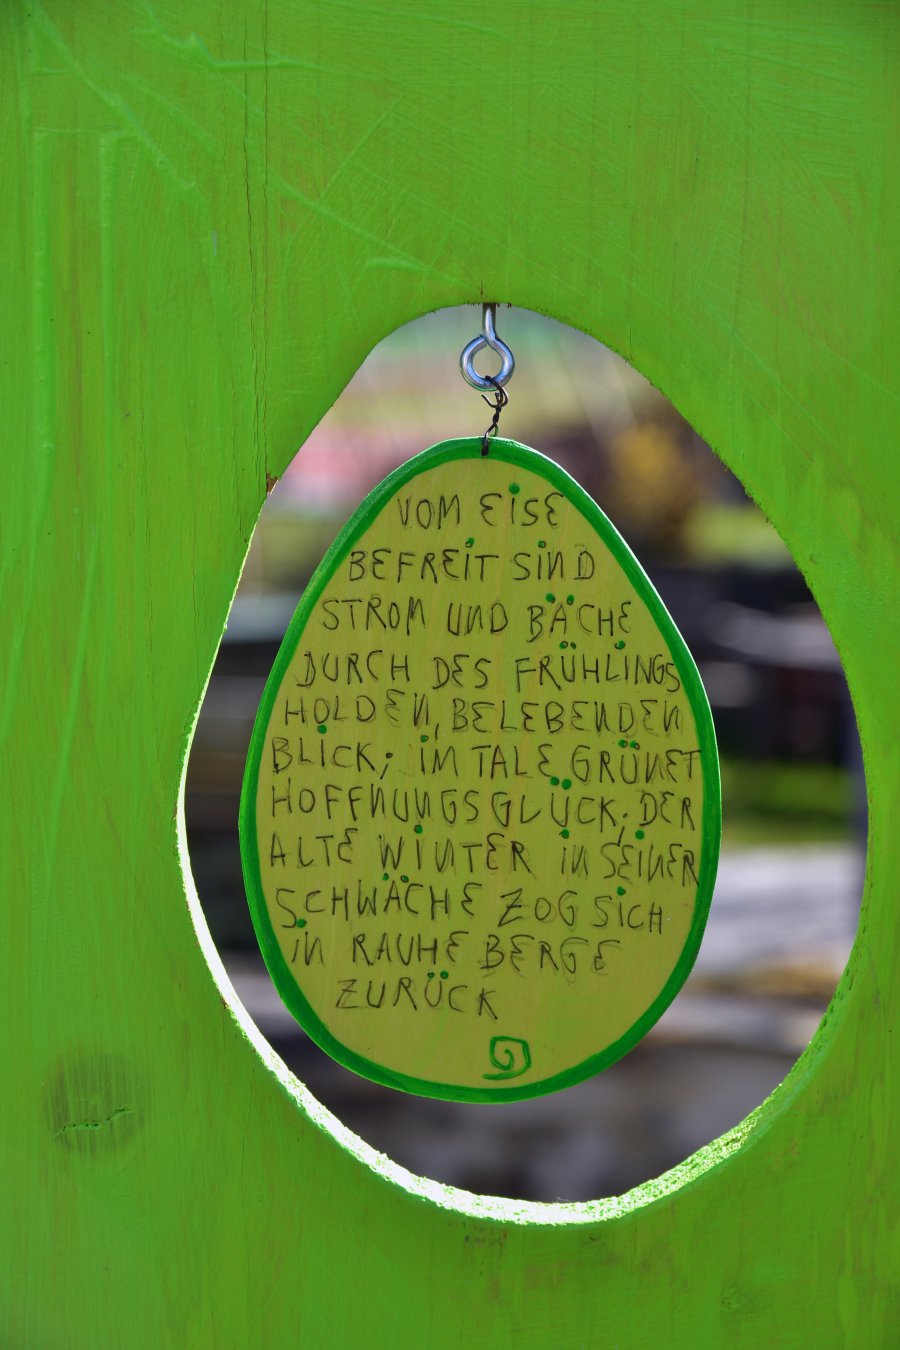 VOM EISE
BEFREIT SIND
STROM UND BÄCHE
DURCH DES FRÜHLINGS
HOLDEN, BELEBENDEN
BLICK; IM TALE GRÜNET
HOFFNUNGSGLÜCK; DER
ALTE WINTER IN SEINER
SCHWÄCHE ZOG SICH
IN RAUHE BERGE
ZURÜCK